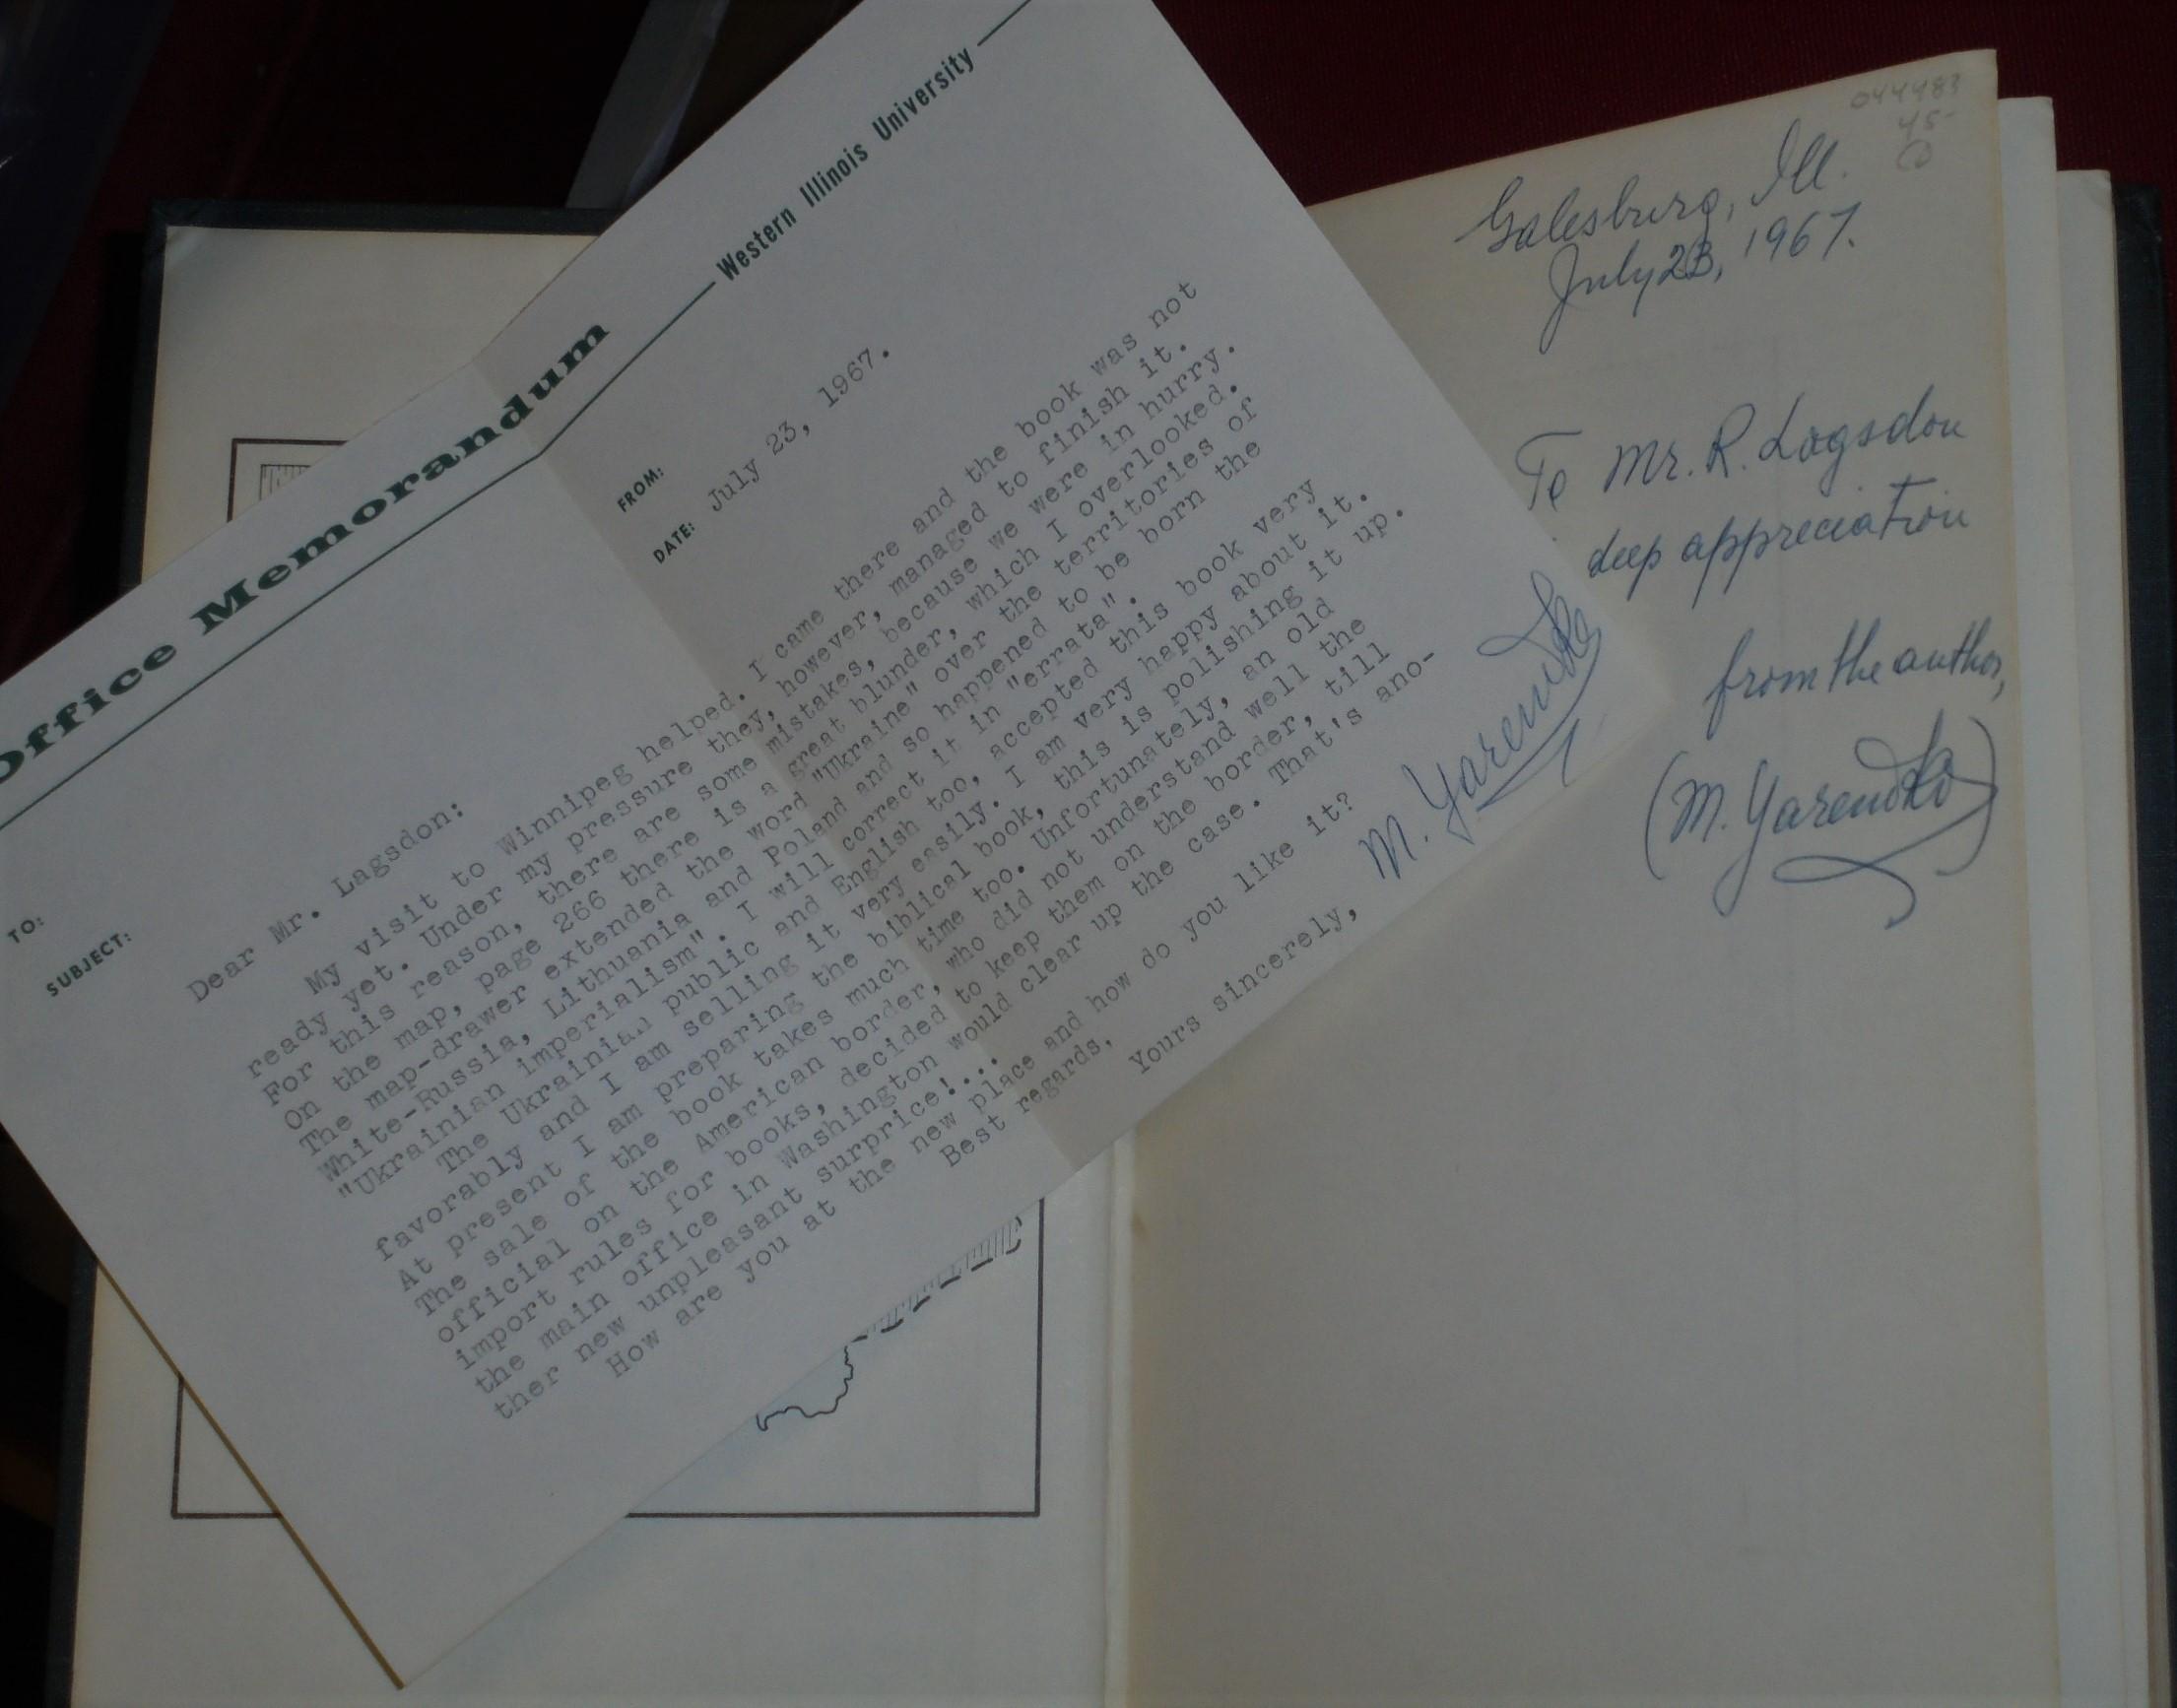 Office Memorandum
Western Illinois University
TO:
SUBJECT:
FROM:
DATE: July 23, 1967.
Dear Mr. Lagsdon:
My visit to Winnipeg helped. I came there and the book was not
ready yet. Under my pressure they, however, managed to finish it.
For this reason, there are some mistakes, because we were in hurry.
On the map, page 266 there is a great blunder, which I overlooked.
The map-drawer extended the word "Ukraine" over the territories of
White-Russia, Lithuania and Poland and so happened to be born the
"Ukrainian imperialism". I will correct it in "errata".
The Ukrainian public and English too, accepted this book very
favorably and I am selling it very easily. I am very happy about it.
At present I am preparing the biblical book, this is polishing it up.
The sale of the book takes much time too. Unfortunately, an old
official on the American border, who did not understand well the
import rules for books, decided to keep them on the border, till
the main office in Washington would clear up the case. That's ano-
ther new unpleasant surprice!...
How are you at the new place and how do you like it?
Best regards,
Yours sincerely,
M. Yarendko
044483
45-
Galesburg, Ill.
July 23, 1967.
To Mr. R. Lagsdon
deep appreciation
from the author,
(M. Yarendko)